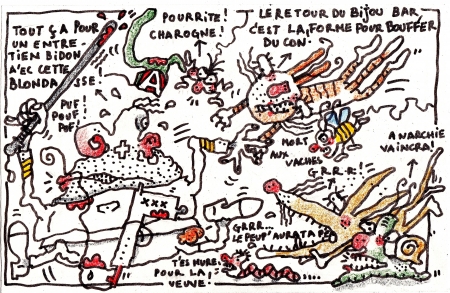 TOUT ÇA POUR
UN ENTRE-
TIEN BIDON
A'EC CETTE
BLONDASSE!
PUF!
POUF
POF
POURRITE!
CHAROGNE!
A
LE RETOUR DU BIJOU BAR
C'EST LA FORME POUR BOUFFER
DU CON!
MORT
AUX
VACHES
ANARCHIE
VAINCRA!
G-R-R-!
XXX
GRRR...
LE PEUP' AURA TA PEAU
T'ES MURE
POUR LA
VEUVE